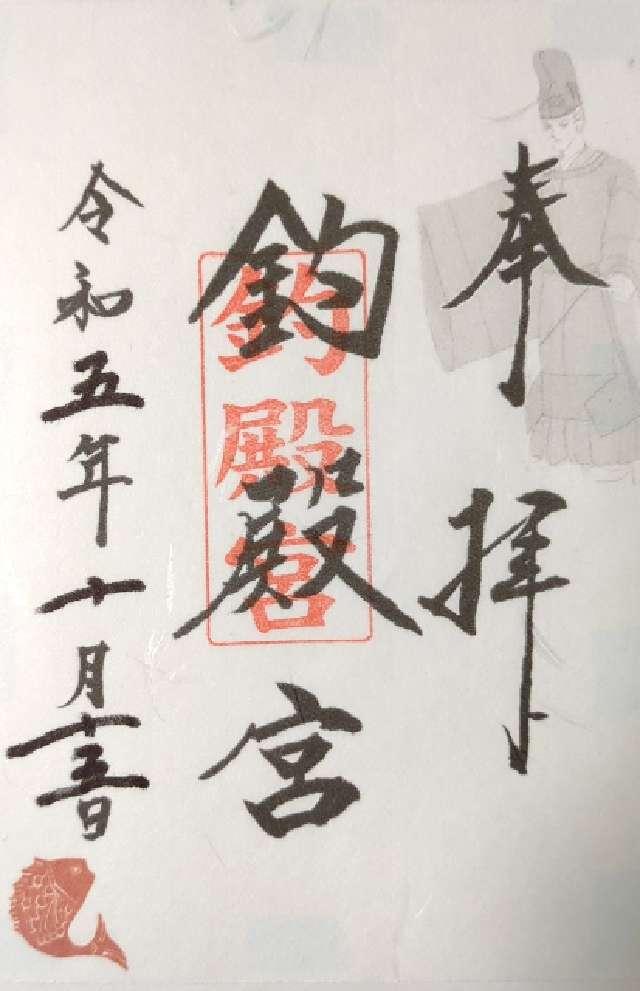 奉拝
釣殿宮
釣殿宮
令和五年十月十五日